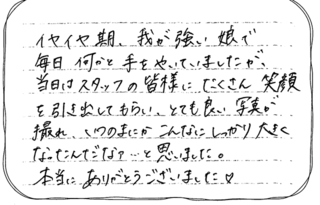 イヤイヤ期、我が強い娘で
毎日何かと手をやいていましたが、
当日はスタッフの皆様にたくさん笑顔
を引き出してもらい、とても良い写真が
撮れ、いつのまにかこんなにしっかり大きく
なったんだなァ…と思いました。
本当にありがとうございました♡